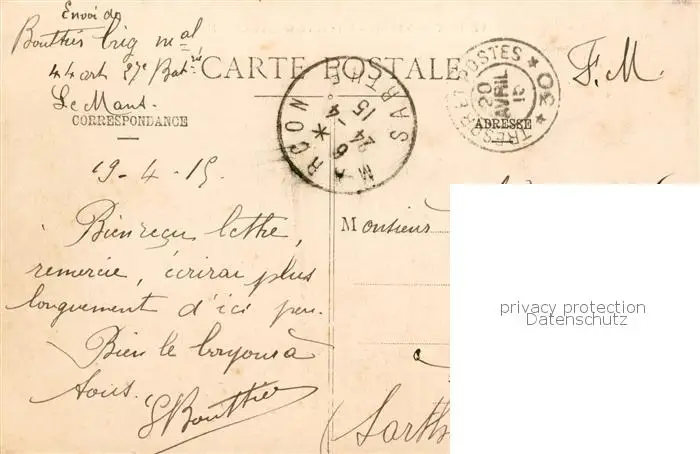 Envoi de
Bouthié brig mal
44 art 37e Batrie
Le Mans.
CARTE POSTALE
F. M.
CORRESPONDANCE
ADRESSE
TRESOR ET POSTES * 20 *
20
AVRIL
15
MARCON SARTHE
6 *
24 - 4
15
19 - 4 - 15.
Bien reçu lettre,
remercie, écrirai plus
longuement d'ici peu.
Bien le bonjour à
tous.
Monsieur
à
(Sarth
privacy protection
Datenschutz